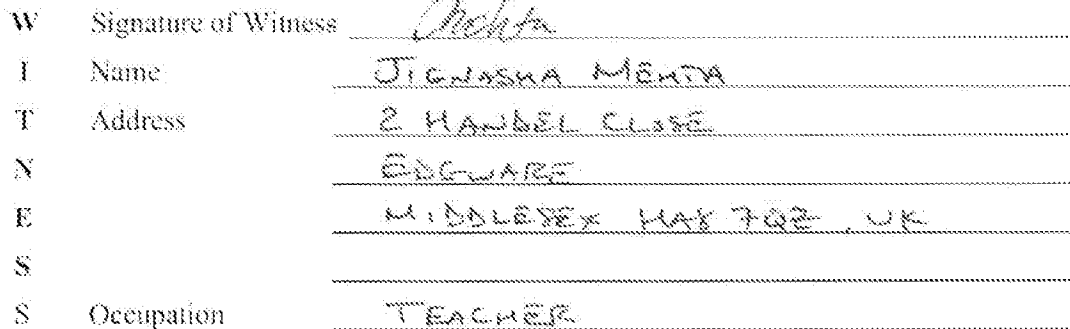 W Signature of Witness Mehta
I Name JIGNASHA MEHTA
T Address 2 HANDEL CLOSE
N EDGWARE
E MIDDLESEX HA8 7QZ, UK
S
S Occupation TEACHER